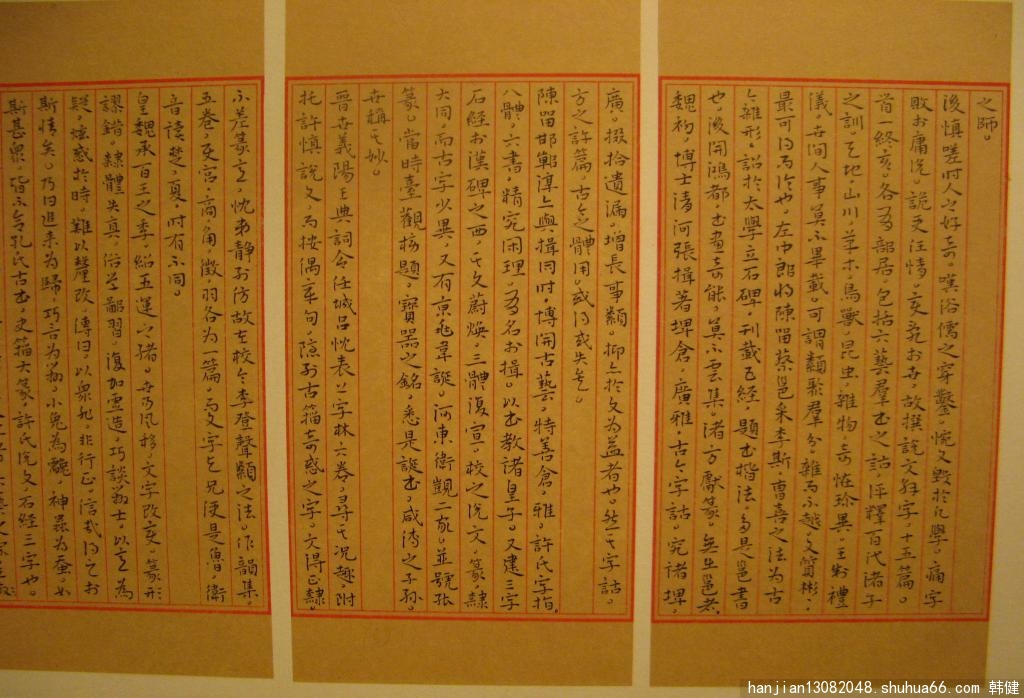 之師。
後慎嗟时人之好奇。嘆俗儒之穿鑿。惋文毀於凡學。痛字
敗於庸说。詭更任情。变乱於世。故撰説文解字十五篇。
首一終亥。各有部居。包括六藝羣书之詁。评釋百代诸子
之訓。天地山川草木。鳥獸。昆虫。雜物。奇怪珍異。王制禮
儀。世间人事。莫不畢載。可謂類聚羣分。雜而不越。文質彬彬。
最可得而论也。左中郎将陳留蔡邕采李斯。曹喜之法为古
今雜形。詔於太學立石碑。刊載五经。題书楷法。多是邕書
也。後開鴻都。书畫奇能。莫不雲集。诸方獻篆。无出邕者。
魏初。博士清河張揖著埤倉。廣雅。古今字詁。究諸埤。
廣。掇拾遺漏。增長事類。抑亦於文为益者也。然其字詁。
方之許篇。古今體用。或得或失矣。
陳留邯鄲淳亦與揖同时。博開古藝。特善倉。雅。許氏字指。
八體。六書。精究闲理。有名於揖。以书教诸皇子。又建三字
石经於漢碑之西。其文蔚焕。三體復宣。校之说文。篆隸
大同。而古字少異。又有京兆韋誕。河東衛覬二家。並號
篆。當时臺觀榜題。寶器之銘。悉是誕书。咸傳之子孙。
世稱其妙。
晉世義陽王典詞令任城呂忱表上字林六卷。尋其况趣。附
托許慎說文。而按偶章句。隐别古籀奇惑之字。文得正隸。
不差篆意。忱弟静别仿故左校令李登聲類之法。作韻集。
五卷。宫。商。角。徵。羽各为一篇。而文字與兄便是魯。衛
音读楚。夏。时有不同。
皇魏承百王之季。绍五運之绪。世易風移。文字改变。篆形
謬錯。隸體失真。俗学鄙習。復加虚造。巧談辩士。以意为
疑。炫惑於時。難以釐改。傳曰。以衆非。非行正。信哉得之於
斯情矣。乃曰追来为歸。巧言为辩。小兔为䨲。神虫为蚕。如
斯甚眾。皆不合孔氏古书。史籀大篆。許氏说文。石經三字也。
hanjian13082048.shuhua66.com 韩健